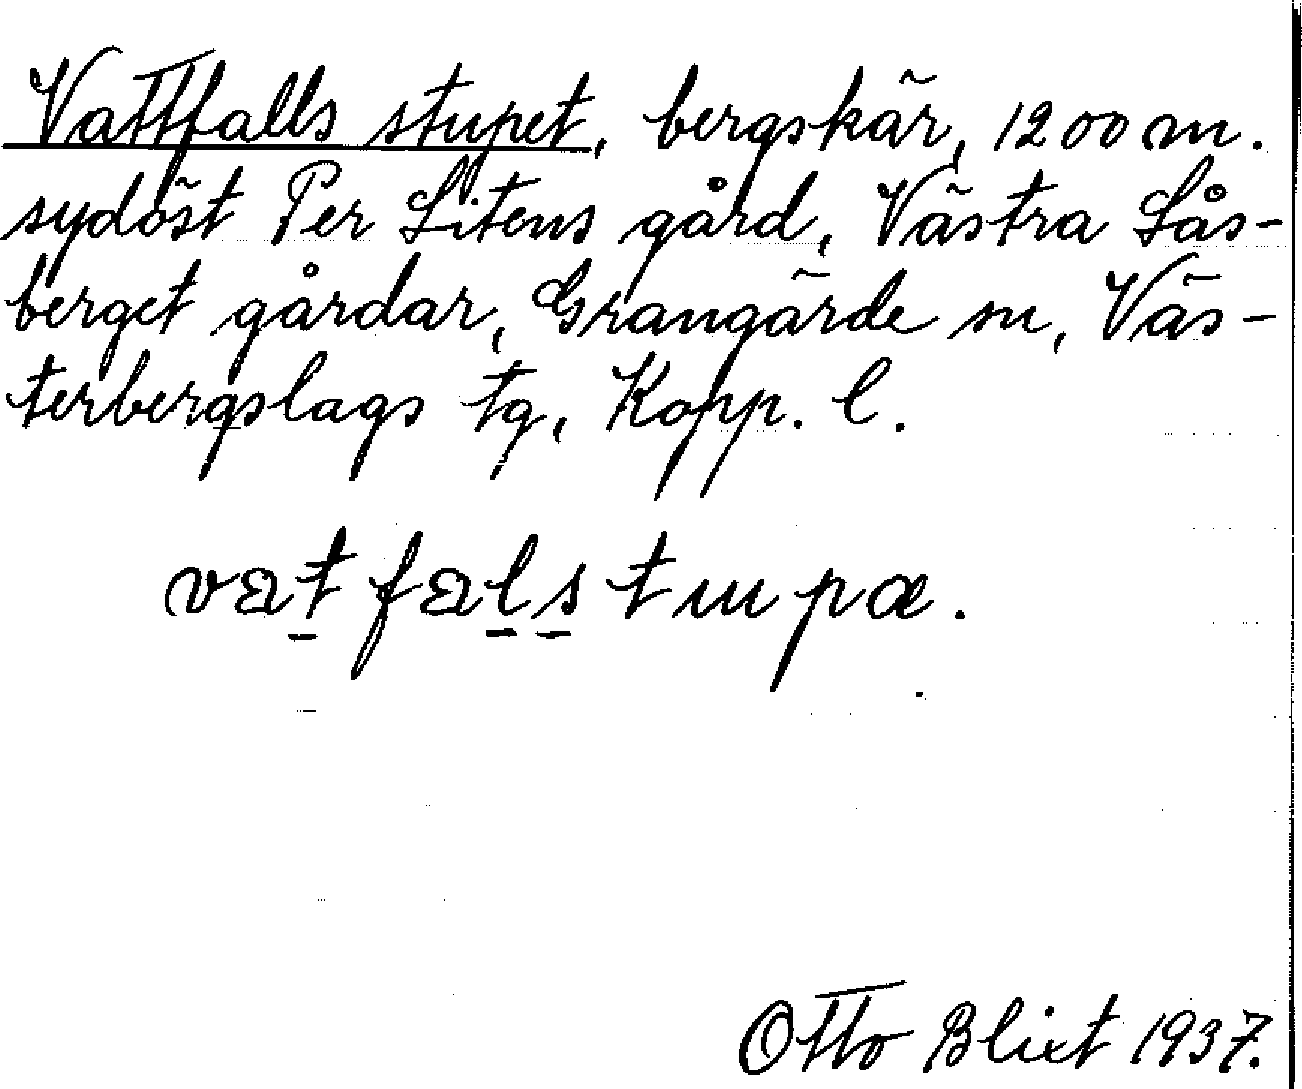 Vattfalls stupet, bergskär, 1200 m.
sydöst Per Litens gård, Västra Lås-
berget gårdar, Grangärde sn, Väs-
terbergslags tg, Kopp. l.
vatfalstupæ.
Otto Blixt 1937.